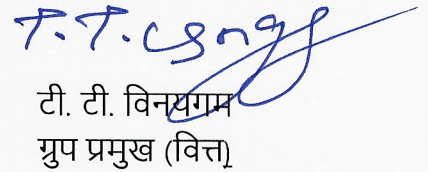 टी. टी. विनयगम
ग्रुप प्रमुख (वित्त)